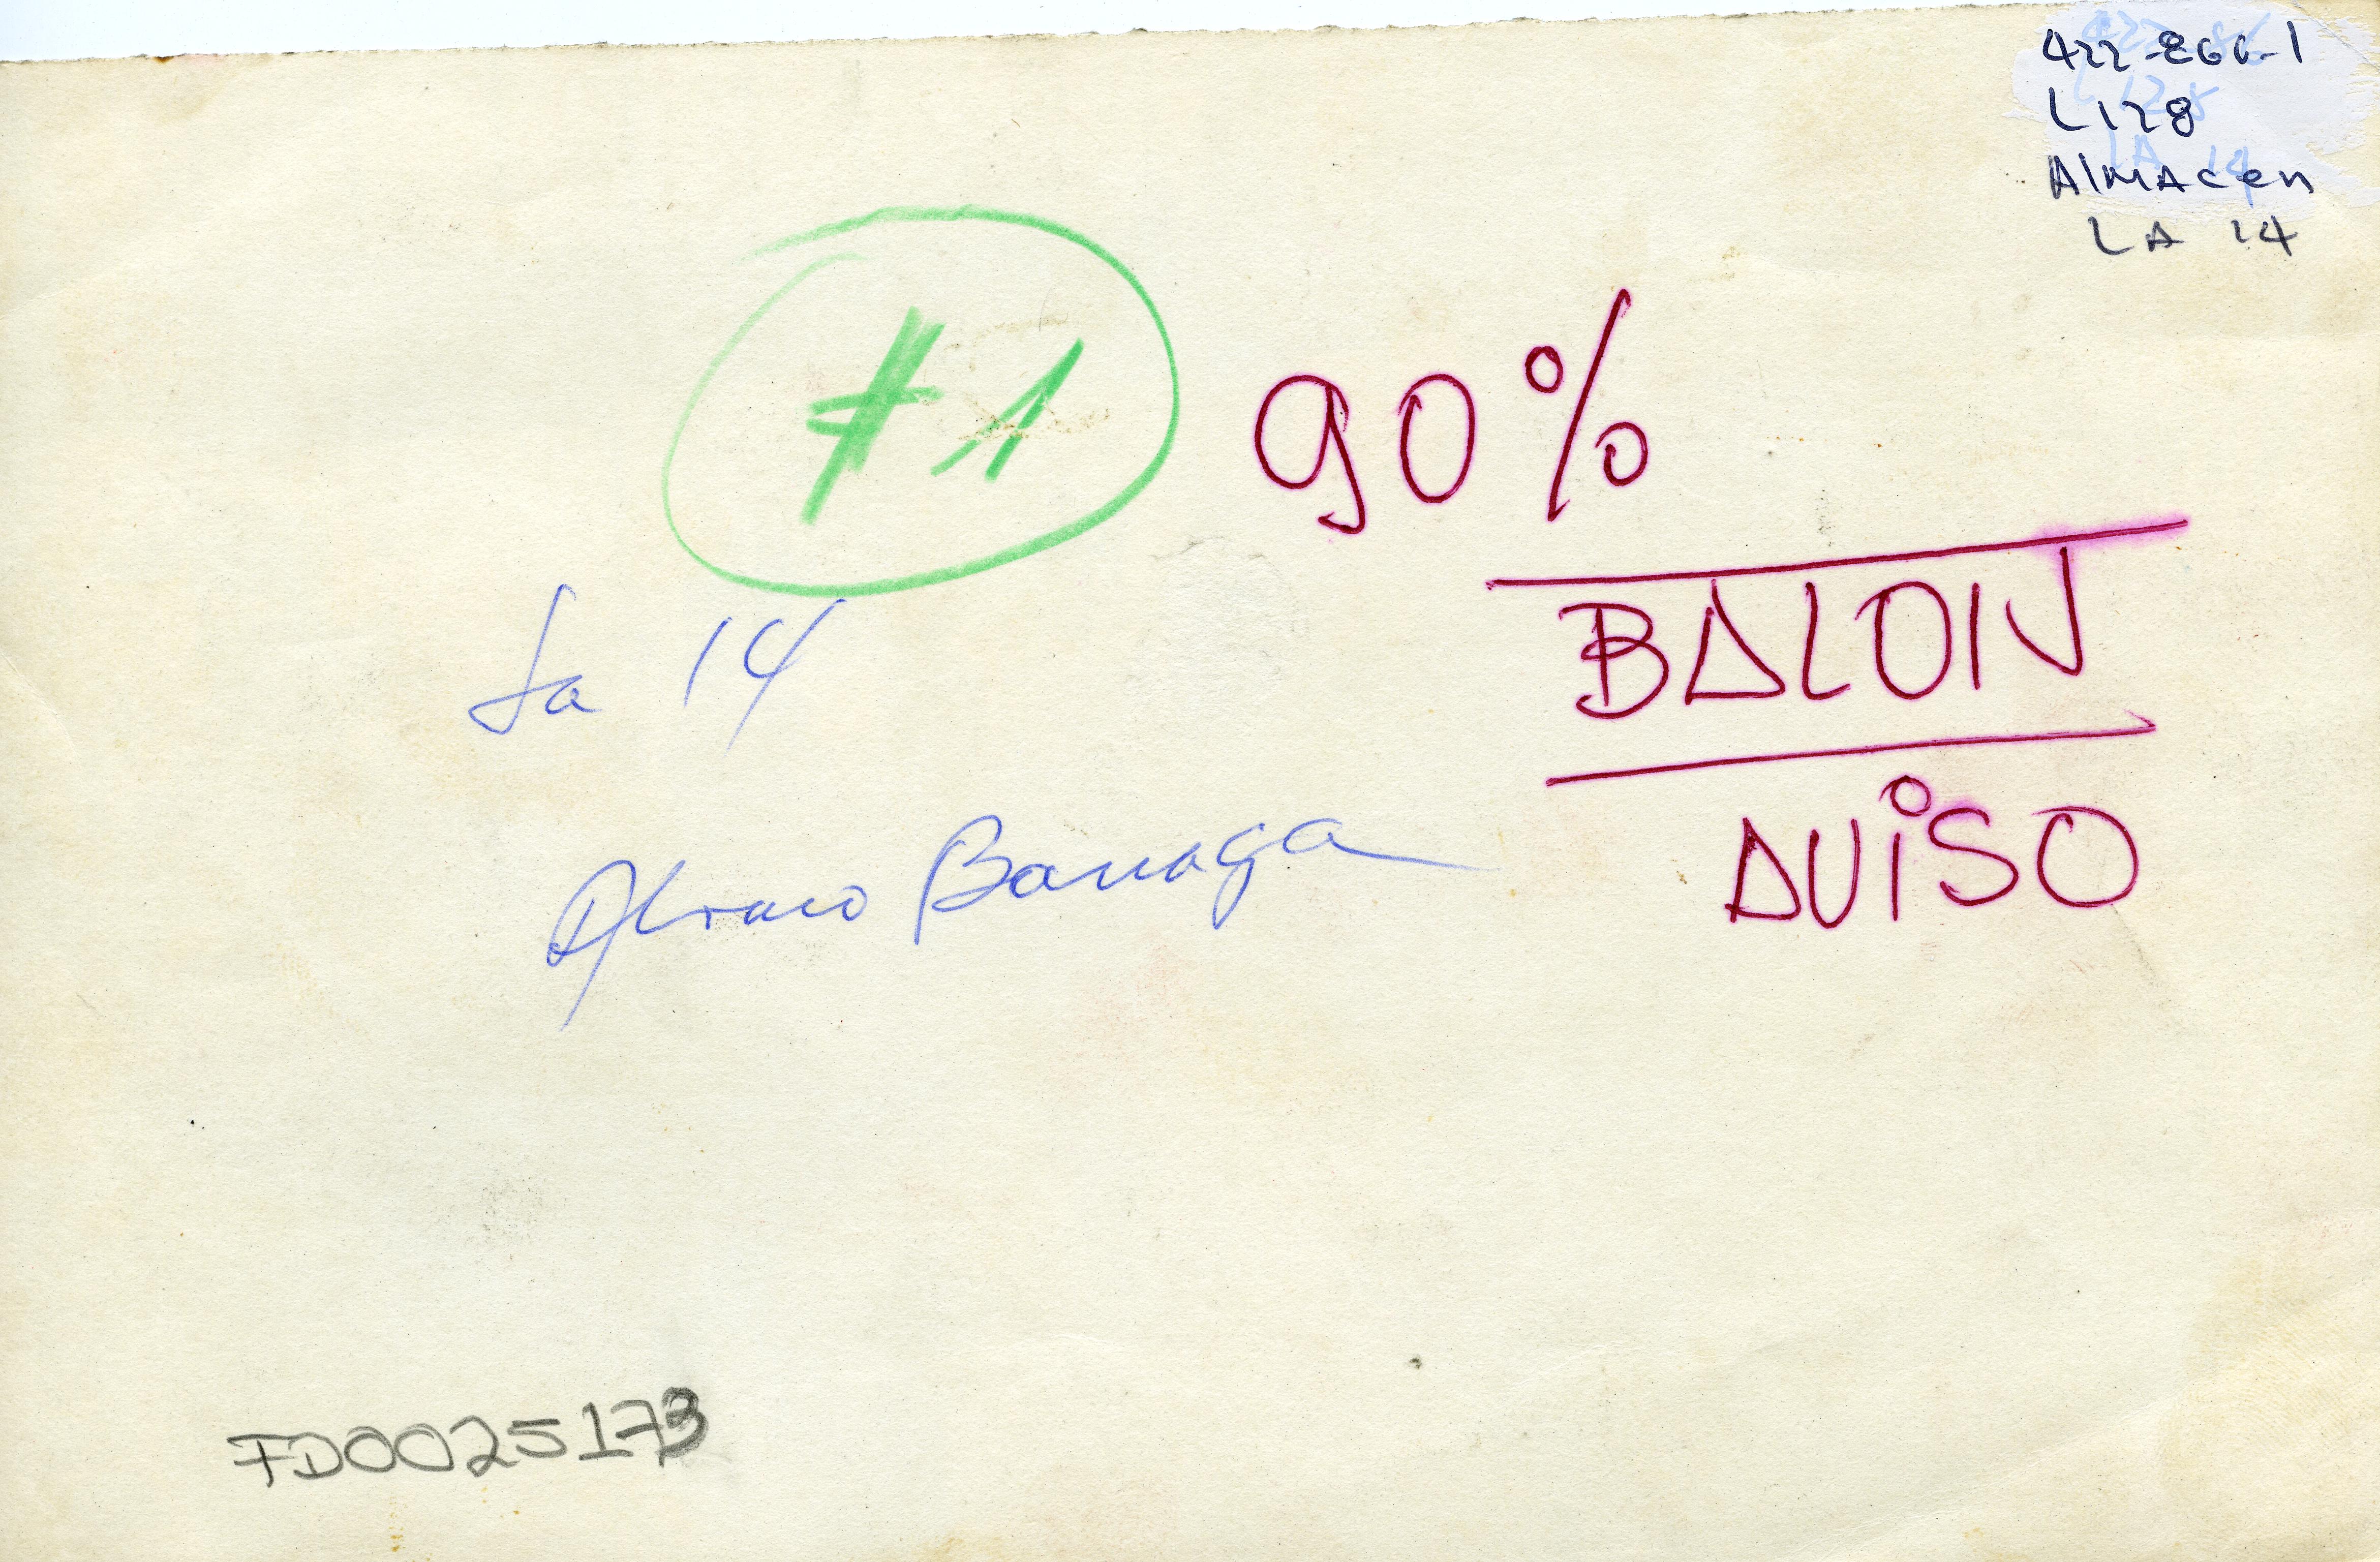 422-866-1
L128
Almacen
LA 14
#1
90%
BALOIJ
AViSO
La 14
Alvaro Barraga
FD0025173